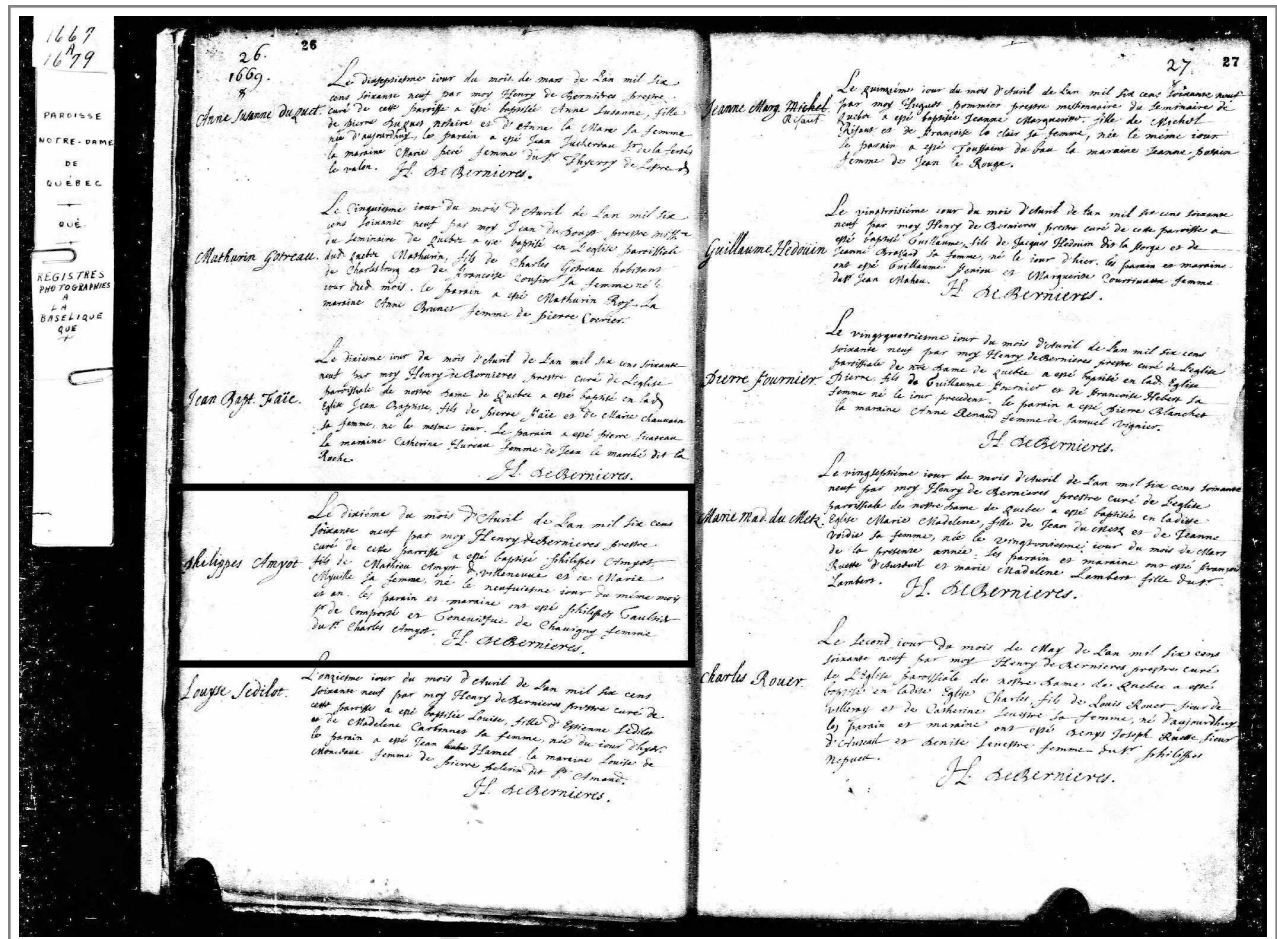 1667
A
1679
PAROISSE
NOTRE-DAME
DE
QUÉBEC
QUÉ.
REGISTRES
PHOTOGRAPHIES
A
LA
BASELIQUE
QUE
26
26.
1669.
8
Anne Susanne Duquet.
Le dixseptiesme iour du mois de mars de Lan mil six
cens soixante neuf par moy Henry de Bernieres prestre
curé de cette parroisse a esté baptisée Anne Susanne, fille
de Pierre Duquet notaire et d'Anne la Mare sa femme
née d'aujourdhuy, le parain a esté Jean Juchereau Sr de la ferté
la maraine Marie peré femme du Sr Thyerry de
le valon. H. de Bernieres.
Mathurin Gotreau.
Le Cinquiesme iour du mois d'Avril de Lan mil six
cens soixante neuf par moy Jean prestre
du Seminaire de Quebec a esté baptisé en L'eglise parroissiale
dud. Quebec Mathurin, fils de Charles Gotreau habitant
de Charlesbourg et de Francoise Cousin sa femme né le
iour dud. mois. le parain a esté Mathurin Roy. La
maraine Anne Brunet femme de pierre
Jean Bapt. Faïe.
Le dixiesme iour du mois d'Avril de Lan mil six cens soixante
neuf par moy Henry de Bernieres prestre curé de L'eglise
parroissiale de nostre dame de Quebec a esté baptisé en lad
Eglise Jean Baptiste, fils de pierre Faïe et de Marie chauvain
sa femme, né le mesme iour. Le parain a esté pierre
la maraine Catherine Hureau femme de Jean le marché dit la
Roche.
H. de Bernieres.
philippes Amyot
Le dixiéme du mois d'Avril de Lan mil six cens
soixante neuf par moy Henry de Bernieres prestre
curé de cette parroisse a esté baptisé philippes Amyot
fils de Mathieu Amyot d villeneuve et de Marie
Myville sa femme, né le neufuiesme iour du mime mois
et an. les parain et maraine ont esté philippes Gaultier
sr de Comporté et Geneuiefue de Chauigny femme
du Sr Charles Amyot. H. de Bernieres.
Louyse Sedilot.
L'onziesme iour du mois d'Avril de Lan mil six cens
soixante neuf par moy Henry de Bernieres prestre curé de
cette parroisse a esté baptisée Louise, fille d'Estienne Sedilot
et de Madelene Carbonnet sa femme, née du iour d'hyer.
le parain a esté Jean Hamel. la maraine Louise de
Monceaux femme de pierre pelerin dit St Amand.
H. de Bernieres.
27
27
Jeanne Marg. Michel
Rifaut
Le quinziéme iour du mois d'Avril de Lan mil six cens soixante neuf
par moy Hugues pommier prestre missionaire du Seminaire de
Quebec a esté baptisée Jeanne Marguerite, fille de Michel
Rifaut et de Françoise la clair sa femme, née le méme iour
le parain a esté Toussaint du bau la maraine Jeanne
femme de Jean le Rouge.
Guillaume Hedoüin
Le vingtroisiéme iour du mois d'Avril de Lan mil six cens soixante
neuf par moy Henry de Bernieres prestre curé de cette parroisse a
esté baptisé Guillaume, fils de Jacques Hedouin dit la forge et de
Jeanne Brassard sa femme, né le iour d'hier. les parain et maraine
ont esté Guillaume et Marguerite femme
du Sr Jean Maheu. H. de Bernieres.
Pierre Fournier
Le vingtquatriesme iour du mois d'Avril de Lan mil six cens
soixante neuf par moy Henry de Bernieres prestre curé de L'eglise
parroissiale de nre dame de Quebec a esté baptisé en lad. Eglise
Pierre, fils de Guillaume Fournier et de Francoise Hebert sa
femme né le iour precedent. le parain a esté pierre Blanchet
la maraine Anne Renaud femme de Samuel Vignier.
H. de Bernieres.
Marie Mad. du Metz.
Le vingtseptiéme iour du mois d'Avril de Lan mil six cens soixante
neuf par moy Henry de Bernieres prestre curé de l'eglise
parroissiale de nostre dame de Quebec a esté baptisée en ladite
Eglise Marie Madelene, fille de Jean du Metz et de Jeanne
Voidie sa femme, née le vingtroisiesme iour du mois de Mars
de la presente année; les parain et maraine ont esté françois
Ruette d'Auteuil et marie Madelene Lambert fille du Sr
Lambert. H. de Bernieres.
Charles Roüer
Le second iour du mois de May de Lan mil six cens
soixante neuf par moy Henry de Bernieres prestre curé
de L'Eglise parroissiale de nostre dame de Quebec a esté
baptisé en ladite Eglise Charles, fils de Louis Rouer sieur de
villeray et de Catherine Seuestre sa femme, né d'aujourdhuy
les parain et maraine ont esté Denys Joseph Ruette sieur
d'Auteuil et Denise Seuestre femme du Sr philippes
Nepueu.
H. de Bernieres.